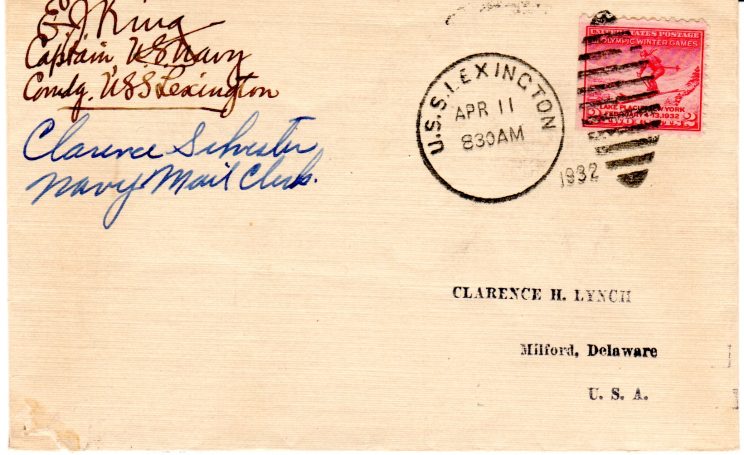 E J King
Captain US Navy
Comdg. USS Lexington
Clarence Silvester
Navy Mail Clerk.
U.S.S. LEXINGTON
APR 11
830AM
1932
UNITED STATES POSTAGE
OLYMPIC WINTER GAMES
LAKE PLACID, NEW YORK
FEBRUARY 4-13, 1932
2 2
CLARENCE H. LYNCH
Milford, Delaware
U. S. A.